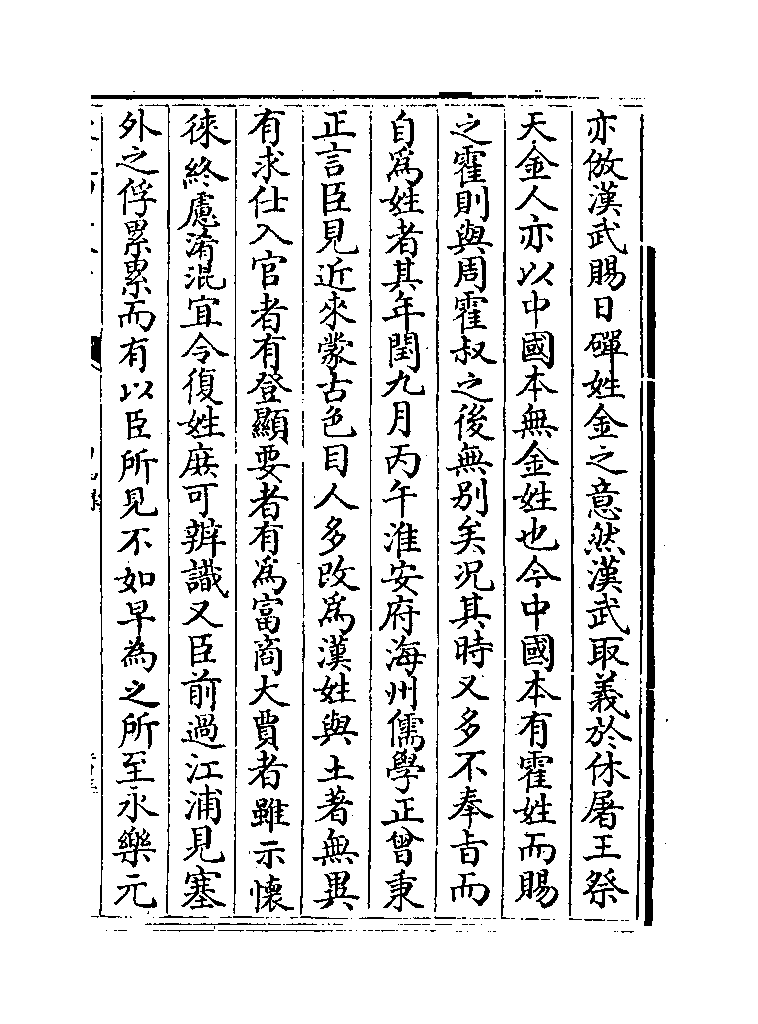 亦倣漢武賜日磾姓金之意然漢武取義於休屠王祭
天金人亦以中國本無金姓也今中國本有霍姓而賜
之霍則與周霍叔之後無别矣况其時又多不奉㫖而
自爲姓者其年閏九月丙午淮安府海州儒學正曾秉
正言臣見近來蒙古色目人多改爲漢姓與土著無異
有求仕入官者有登顯要者有爲富商大賈者雖示懷
徠終慮淆混宜令復姓庶可辨識又臣前過江浦見塞
外之俘累累而有以臣所見不如早為之所至永樂元